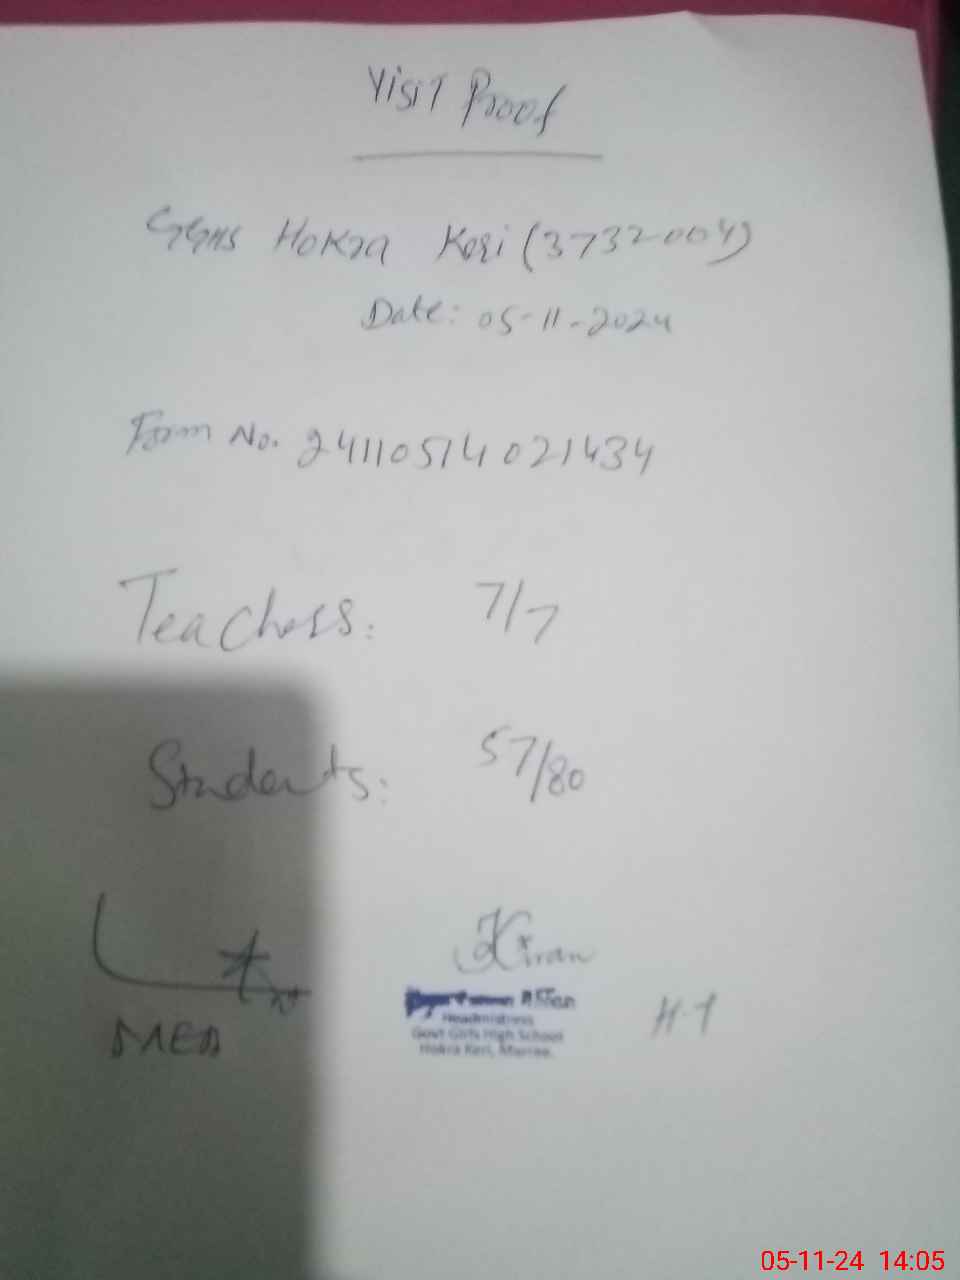 Visit Proof
GGHS Hokra Keri (37320049)
Date: 05-11-2024
Form No. 24110514021434
Teachers: 7/7
Students: 57/80
Kiran
MEA
Headmistress
H.T
Govt Girls High School
Hokra Keri, Murree.
05-11-24 14:05